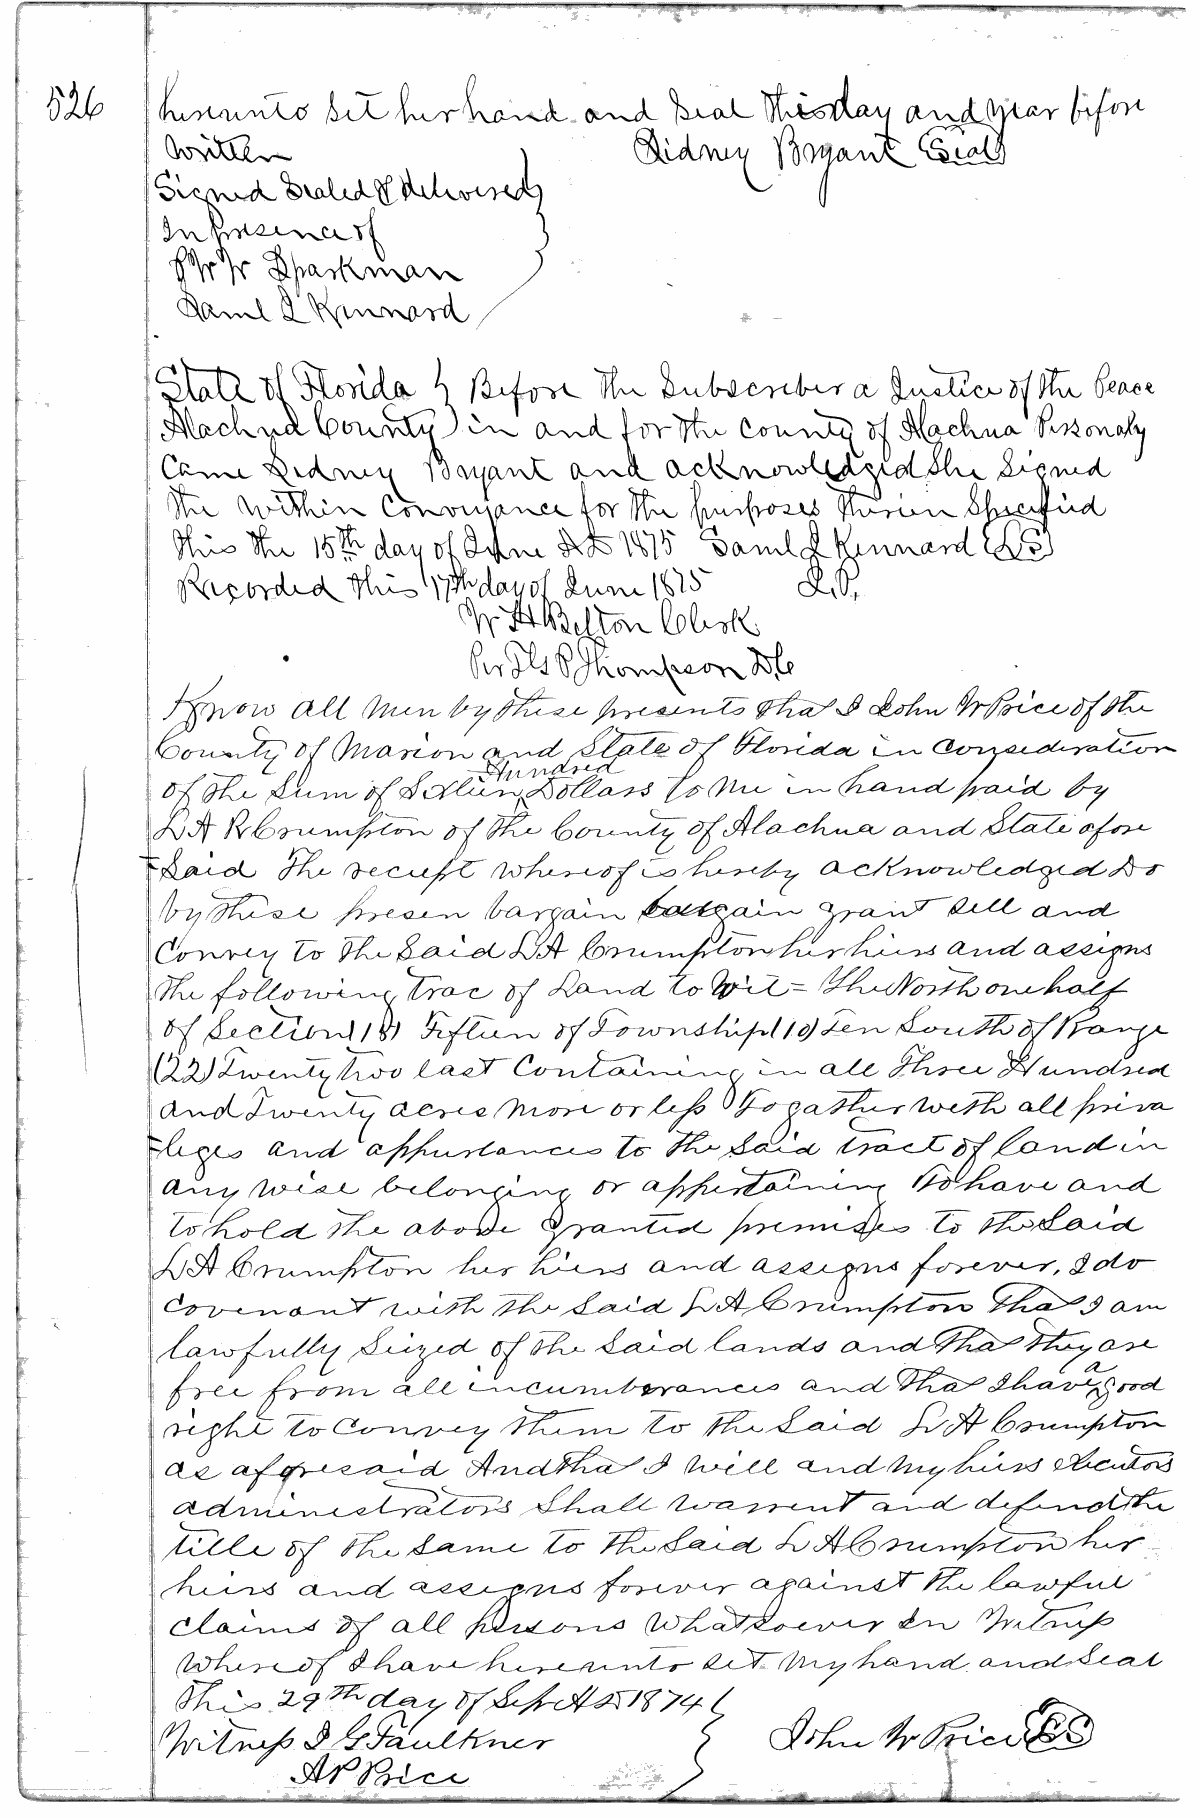 526
hereunto set her hand and Seal this day and year before
Written Sidney Bryant (Seal)
Signed Sealed & delivered
In presence of
W W Sparkman
Saml J Kennard
State of Florida } Before the Subscriber a Justice of the Peace
Alachua County } in and for the county of Alachua Personaly
Came Sidney Bryant and acknowledged She Signed
the within Conveyance for the purposes therein Specified
this the 15th day of June AD 1875 Saml J Kennard (LS)
Recorded this 17th day of June 1875 J.P.
W H Belton Clerk
Per P Thompson D.C
Know all men by these presents tha I John W Price of the
County of Marion and State of Florida in consideration
of the Sum of Sixteen Hundred Dollars to me in hand paid by
L A R Crumpton of the County of Alachua and State afore
=Said the reciept whereof is hereby acknowledged Do
by these presen bargain bargain grant Sell and
Convey to the Said L A Crumpton her hiers and assigns
the following trac of Land to Wit= The North one half
of Section (15) Fifteen of Township (10) Ten South of Range
(22) Twenty two East Containing in all Three Hundred
and Twenty acres more or less Togather with all priva
=leges and appurtances to the Said tract of land in
any wise belonging or appertaining To have and
to hold the above granted premises to the Said
L A Crumpton her hiers and assigns forever, I do
covenant with the Said L A Crumpton tha I am
lawfully Siezed of the Said lands and tha they are
free from all incumberances and tha I have a good
right to convey them to the Said L A Crumpton
as aforesaid And tha I will and my hiers executors
administrators Shall warrent and defend the
title of the Same to the Said L A Crumpton her
heirs and assigns forever against the lawful
claims of all persons whatsoever In Witness
Whereof I have hereunto Set my hand and Seal
this 29th day of Sept AD 1874
Witness J G Faulkner John W Price (LS)
A P Price